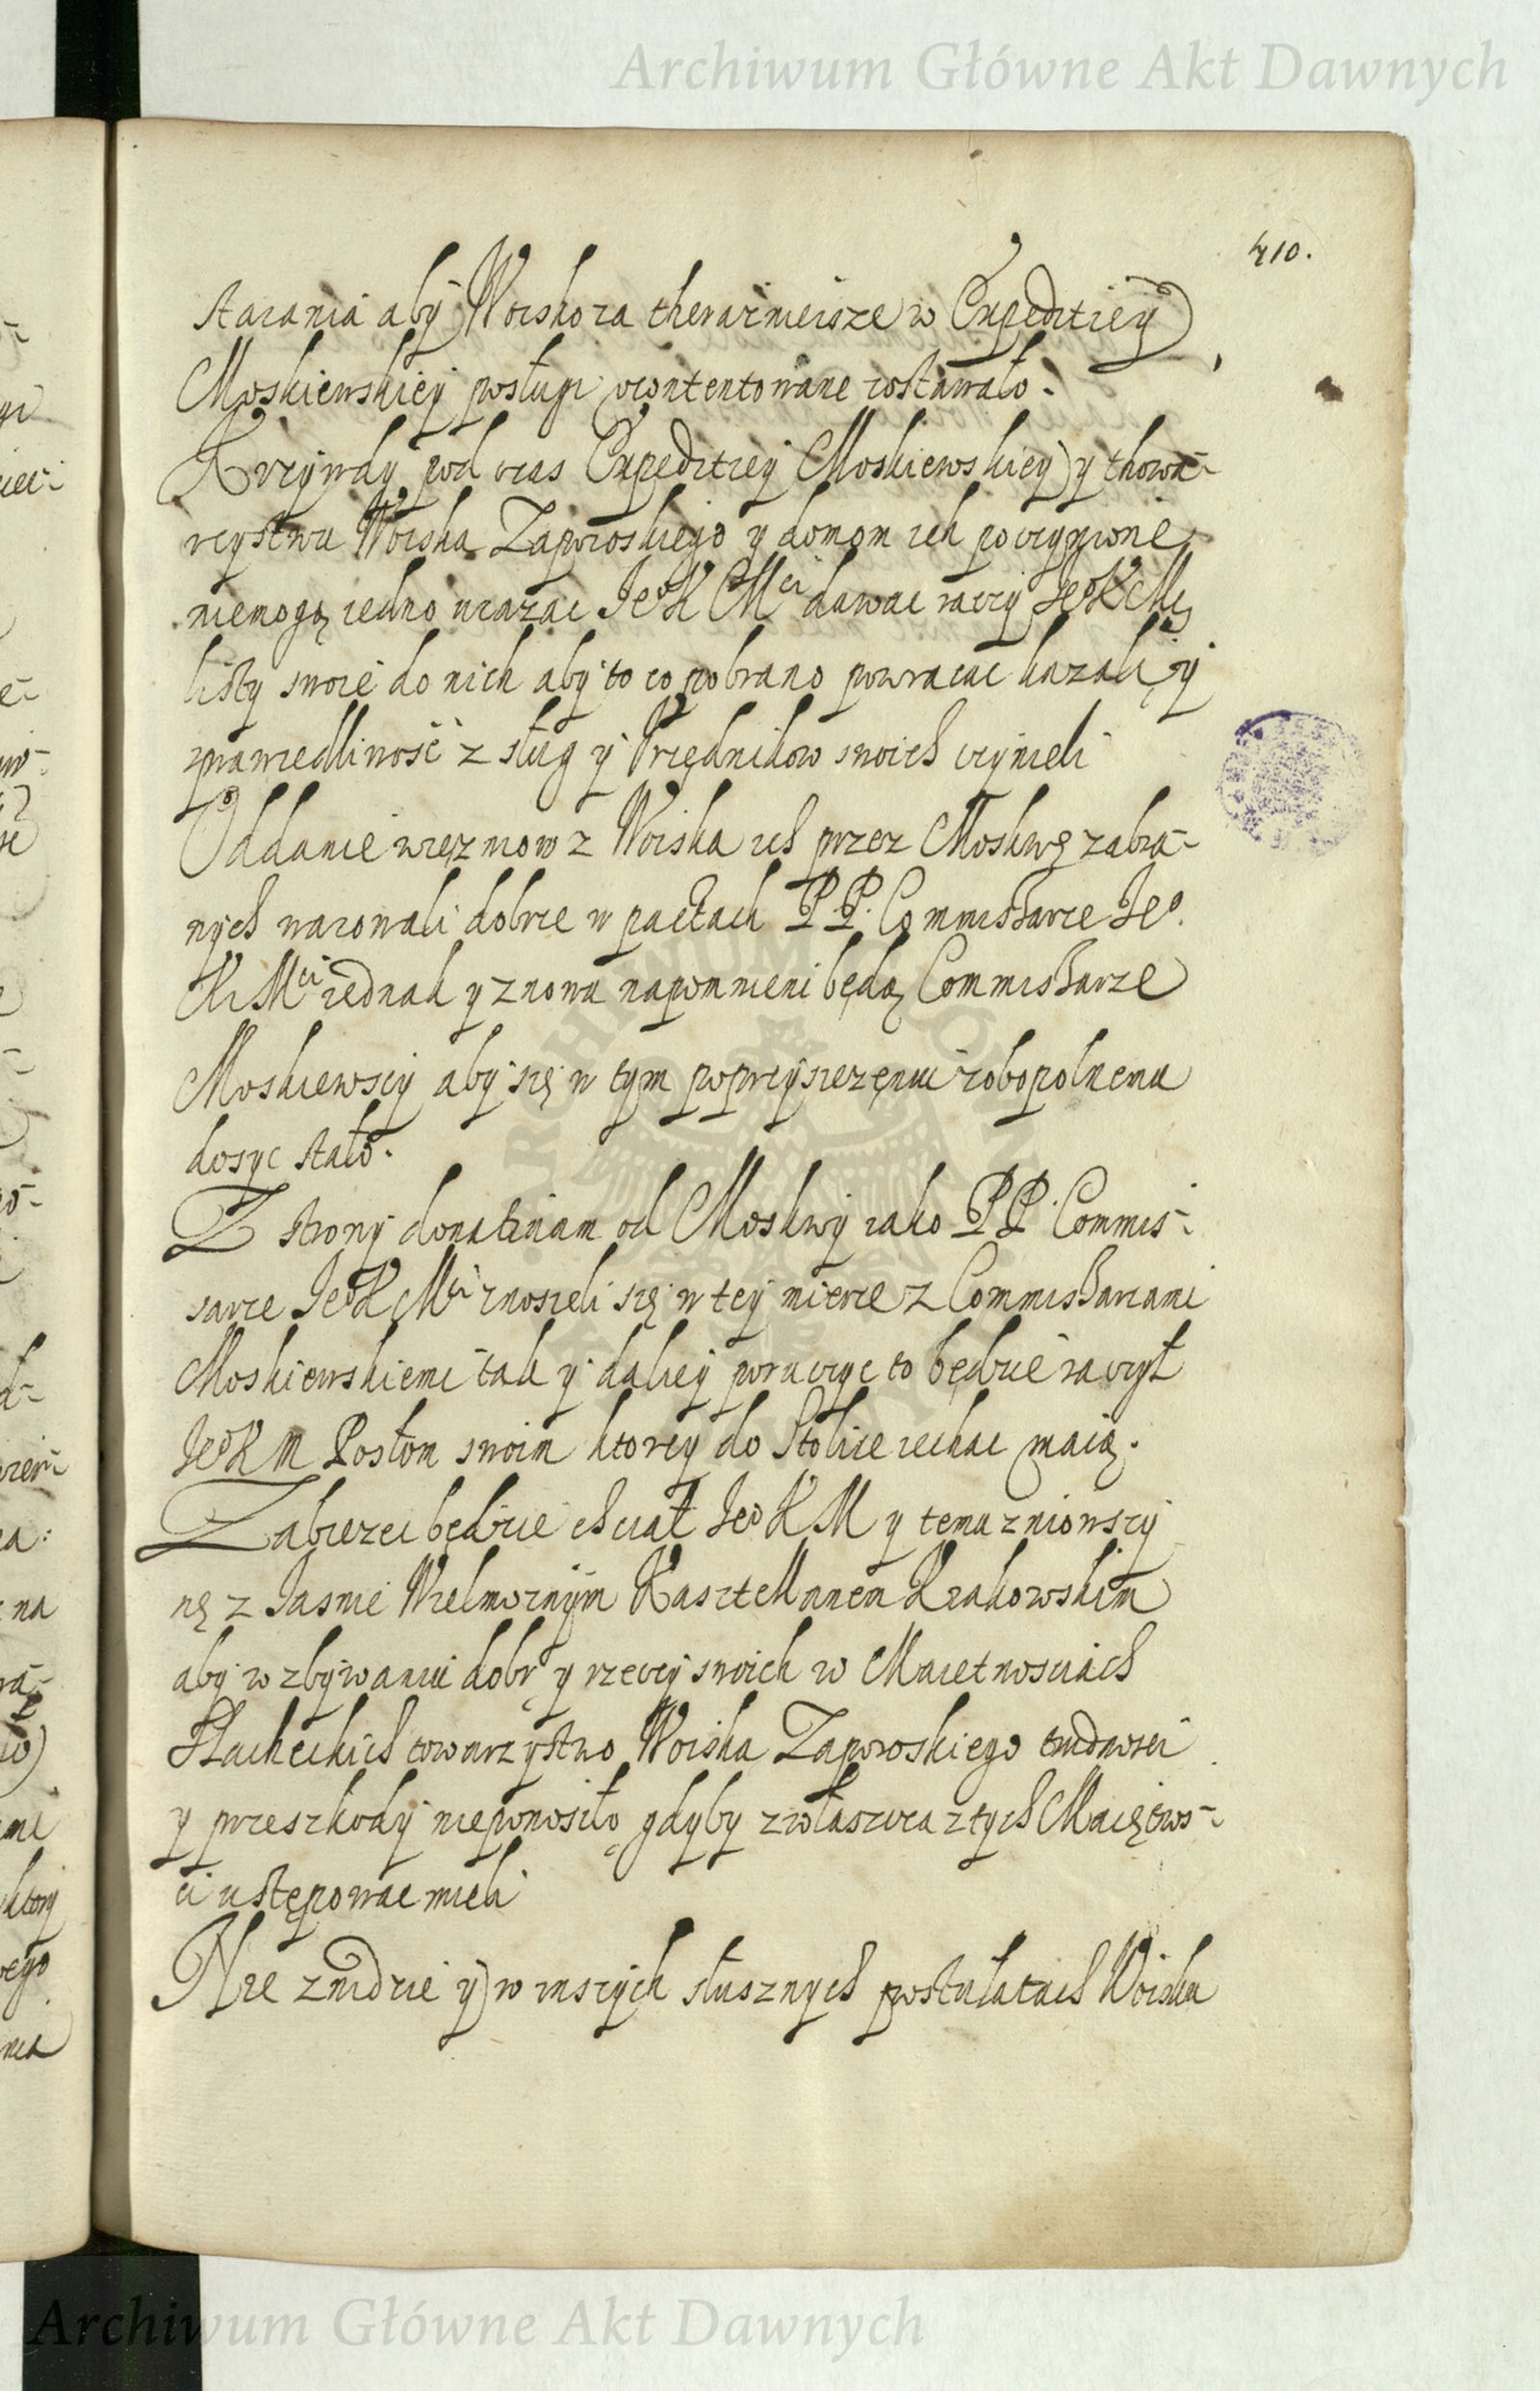 Archiwum Główne Akt Dawnych
410.
starania aby Woisko za theraznieisze w Expeditiey
Moskiewskiey posługi vcontentowane zostawało.
Krzywdy pod czas Expeditiey Moskiewskiey y thowa-
rzystwu Woiska Zaporoskiego y domom ich poczynione
niemogą iedno urazac Jeo K Mci dawac raczy Jeo K Mć
listy swoie do nich aby to co pobrano powracac kazali y
sprawiedliwość z sług y Vrzędnikow swoich czynieli
Oddanie więzniow z Woiska ich przez Moskwę zabra-
nych warowali dobrze w pactach P.P. Commissarze Jeo.
K Mci iednak y znowu napomnieni będą Commissarze
Moskiewscy aby się w tym poprzysiezeniu zobopolnemu
dosyc stało.
Z strony donatinam od Moskwy iako P P. Commis-
sarze Jeo K Mci znosieli się w tey mierze z Commissarzami
Moskiewskiemi tak y daliey poruczyc to będzie raczył
Jeo K M Posłom swoim ktorzy do Stolice iechac maią.
Zabiezec będzie chciał Jeo K M y temu zniowszy
się z Jasnie Wielmoznym Kasztellanem Krakowskim
aby w zbywaniu dobr y rzeczy swoich w Maietnosciach
Slacheckich towarzystwo Woiska Zaporoskiego trudnosci
y przeszkody nieponosiło gdyby zwłaszcza z tych Maiętnos-
ci ustępowac mieli
Nie znidzie y w inszych słusznych postulatach Woisku
Archiwum Główne Akt Dawnych